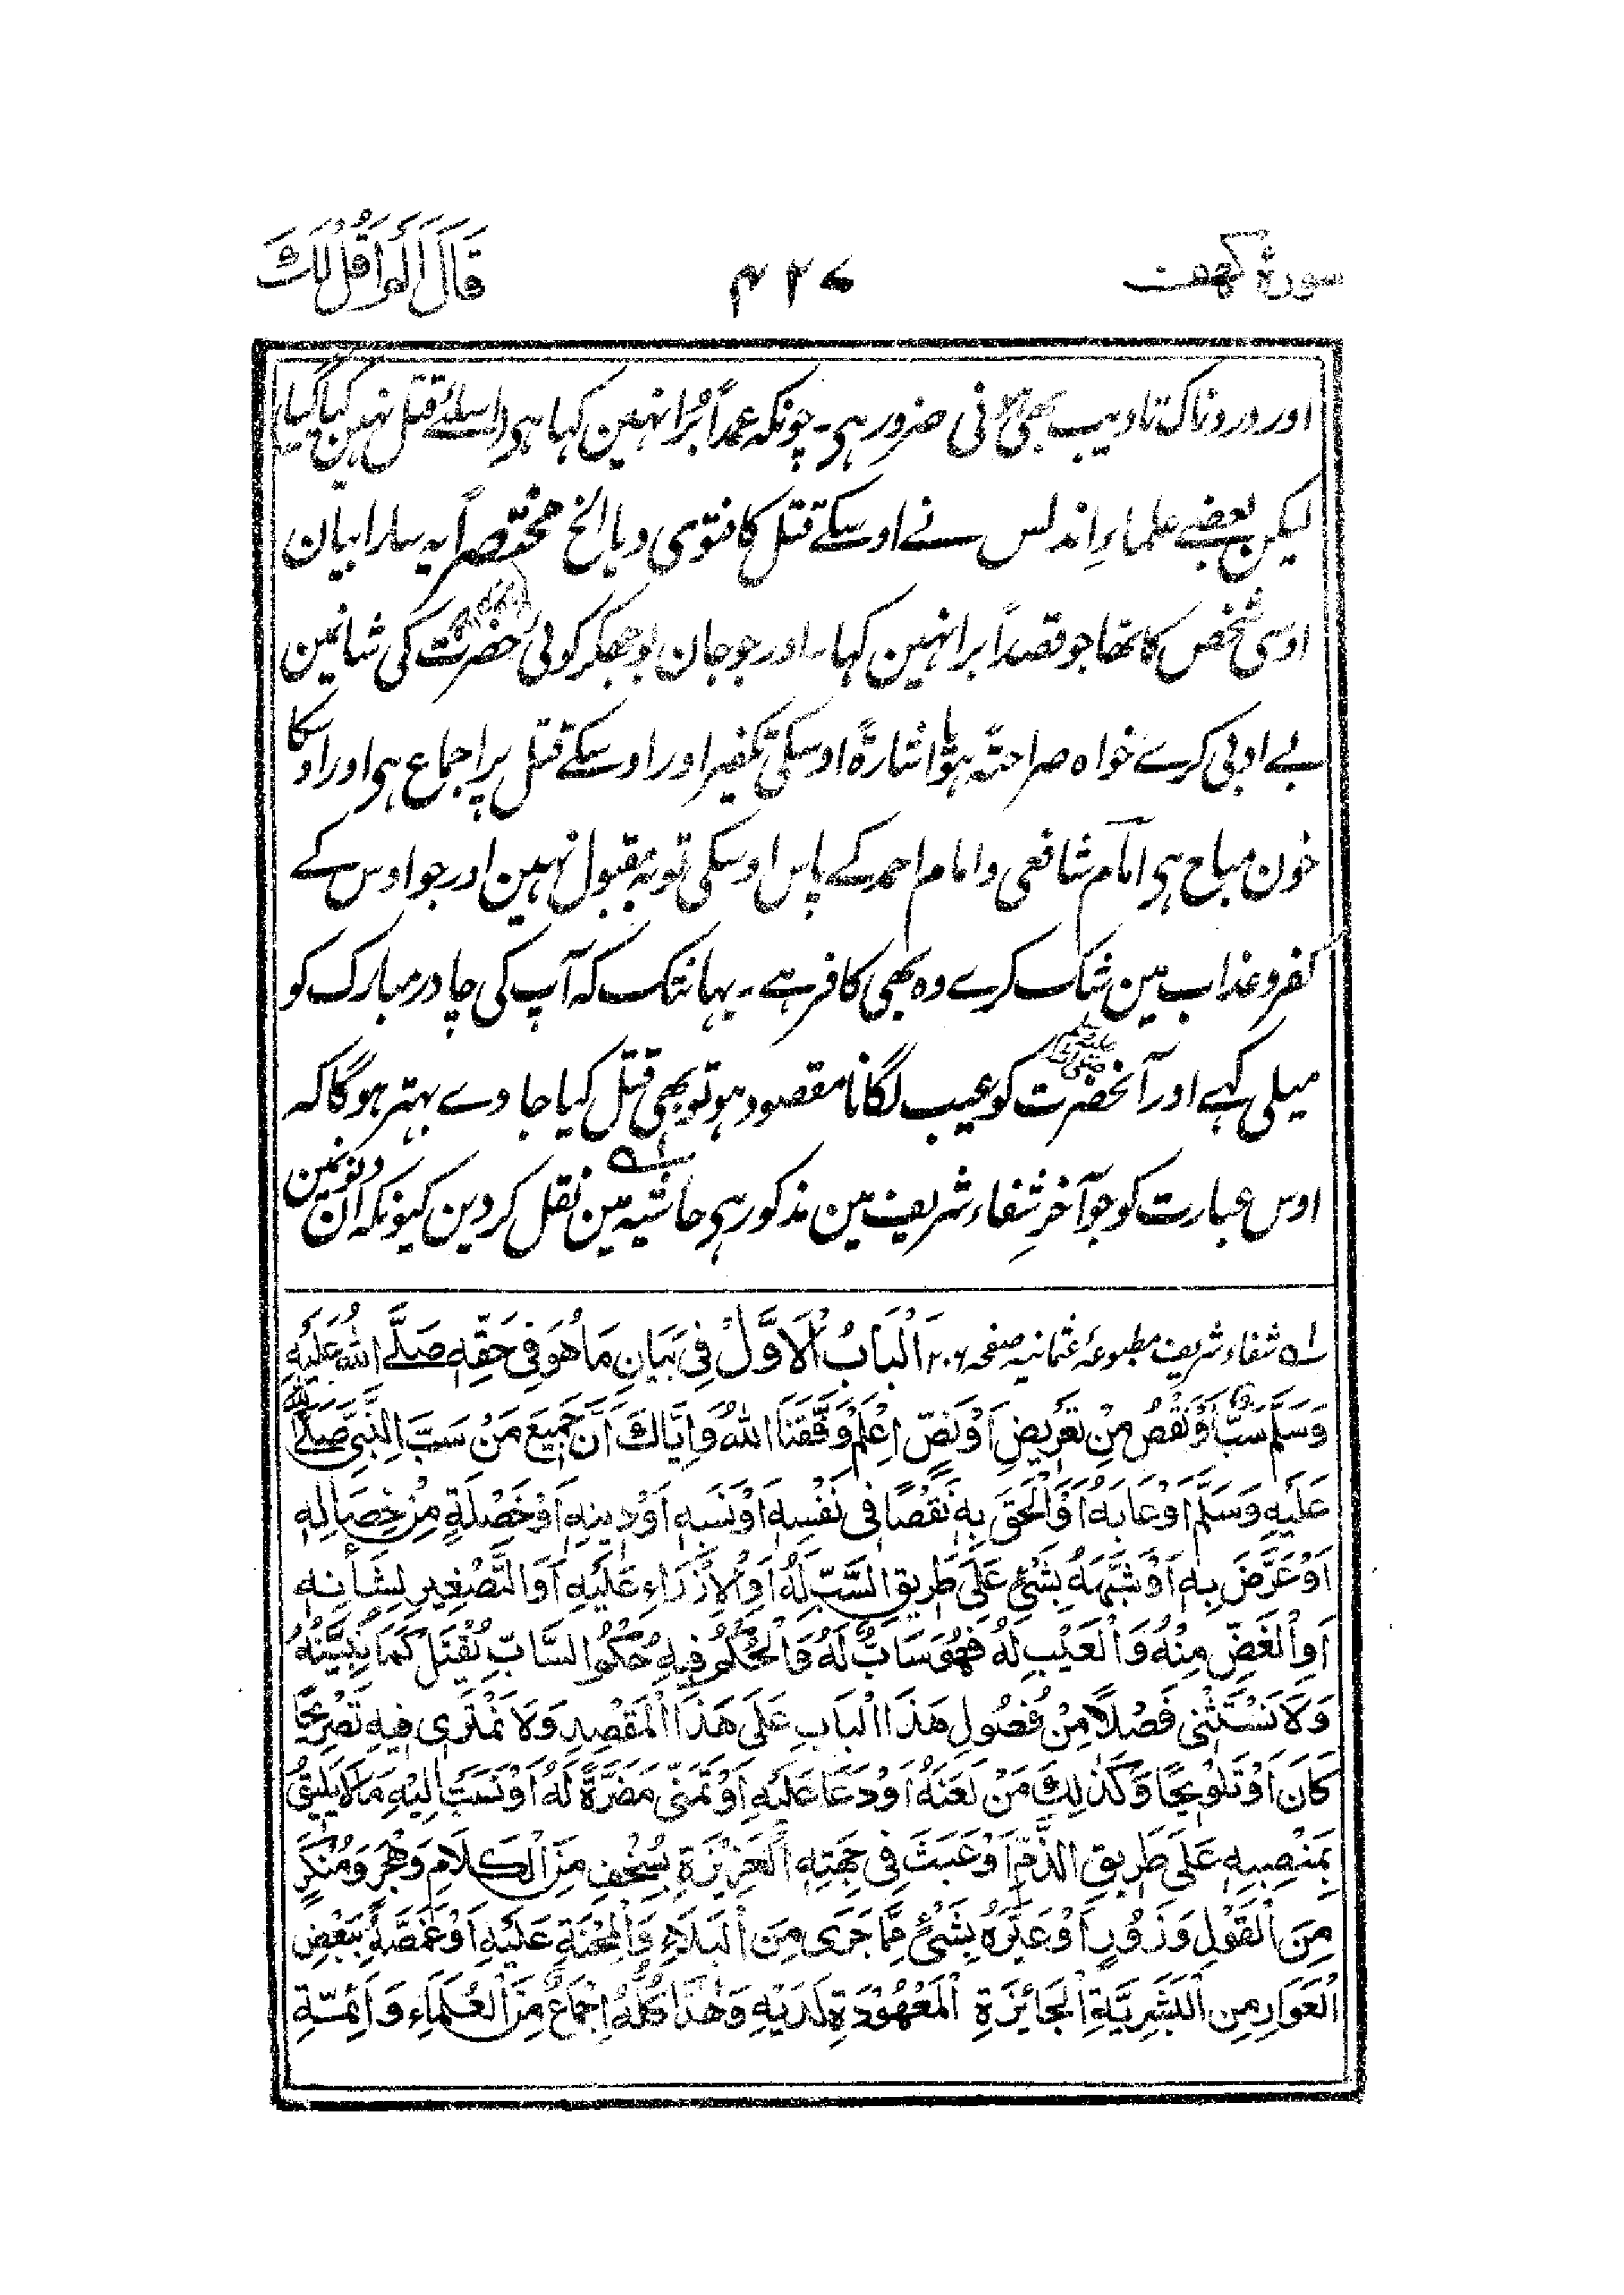 سورۂ کہف
۴۲۷
قَالَ اَلَمْ اَقُلْ لَّكَ
اور دردناک تادیب بھی ہونی ضرور ہی۔ چونکہ عمداً بُرا نہین کہا ہی اسلئے قتل نہین کیا گیا
لیکن بعضے علماءِ اندلس نے اوسکے قتل کا فتوی دیا الخ مختصراً یہ سارا بیان
اوسی شخص کا تھا جو قصداً برا نہین کہا۔ اور جو جان بوجھکر کوئی حضرت کی شانمین
بے ادبی کرے خواہ صراحتہً ہو یا اشارۃً اوسکی تکفیر اور اوسکے قتل پر اجماع ہی اور اوسکا
خون مباح ہی امام شافعی و امام احمد کے پاس اوسکی توبہ مقبول نہین اور جو اوس کے
کفر و عذاب مین شک کرے وہ بھی کافر ہے۔ یہانتک کہ آپ کی چادر مبارک کو
میلی کہے اور آنحضرت صلی اللہ علیہ وسلم کو عیب لگانا مقصود ہو تو بھی قتل کیا جاوے بہتر ہوگا کہ
اوس عبارت کو جو آخرِ شفاء شریف مین مذکور ہی حاشیہ مین نقل کردین کیونکہ ان دنونمین
۱ شفاء شریف مطبوعۂ عثمانیہ صفحہ ۲۰۶ اَلْبَابُ الْاَوَّلُ فِی بَیَانِ مَا هُوَ فِی حَقِّهٖ صَلَّے اللّٰهُ عَلَیْهِ
وَسَلَّمَ سَبٌّ اَوْ نَقْصٌ مِنْ تَعْرِیْضٍ اَوْ نَصٍّ اِعْلَمْ وَفَّقَنَا اللّٰهُ وَاِیَّاكَ اَنَّ جَمِیْعَ مَنْ سَبَّ النَّبِیَّ صَلَّے اللّٰه
عَلَیْهِ وَسَلَّمَ اَوْ عَابَهٗ اَوْ اَلْحَقَ بِهٖ نَقْصًا فِی نَفْسِهٖ اَوْ نَسَبِهٖ اَوْ دِیْنِهٖ اَوْ خَصْلَةٍ مِنْ خِصَالِهٖ
اَوْ عَرَّضَ بِهٖ اَوْ شَبَّهَهٗ بِشَیْءٍ عَلَی طَرِیْقِ السَّبِّ لَهٗ اَوِ الْاِزْرَاءِ عَلَیْهِ اَوِ التَّصْغِیْرِ لِشَأْنِهٖ
اَوِ الْغَضِّ مِنْهُ وَالْعَیْبِ لَهٗ فَهُوَ سَابٌّ لَهٗ وَالْحُكْمُ فِیْهِ حُكْمُ السَّابِّ یُقْتَلُ كَمَا نُبَیِّنُهٗ
وَلَا نَسْتَثْنِی فَصْلًا مِنْ فُصُوْلِ هَذَا الْبَابِ عَلَی هَذَا الْمَقْصِدِ وَلَا نَمْتَرِی فِیْهِ تَصْرِیْحًا
كَانَ اَوْ تَلْوِیْحًا وَكَذٰلِكَ مَنْ لَعَنَهٗ اَوْ دَعَا عَلَیْهِ اَوْ تَمَنّٰی مَضَرَّةً لَهٗ اَوْ نَسَبَ اِلَیْهِ مَا لَا یَلِیْقُ
بِمَنْصِبِهٖ عَلَی طَرِیْقِ الذَّمِّ اَوْ عَبَثَ فِی جِهَتِهِ الْعَزِیْزَةِ بِسُخْفٍ مِنَ الْكَلَامِ وَهُجْرٍ وَمُنْكَرٍ
مِنَ الْقَوْلِ وَزُوْرٍ اَوْ عَیَّرَهٗ بِشَیْءٍ مِمَّا جَرَی مِنَ الْبَلَاءِ وَالْمِحْنَةِ عَلَیْهِ اَوْ غَمَصَهٗ بِبَعْضِ
الْعَوَارِمِنِ الْبَشَرِیَّةِ الْجَائِزَةِ الْمَعْهُوْدَةِ لَدَیْهِ وَهٰذَا كُلُّهٗ اِجْمَاعٌ مِنَ الْعُلَمَاءِ وَاَئِمَّةِ